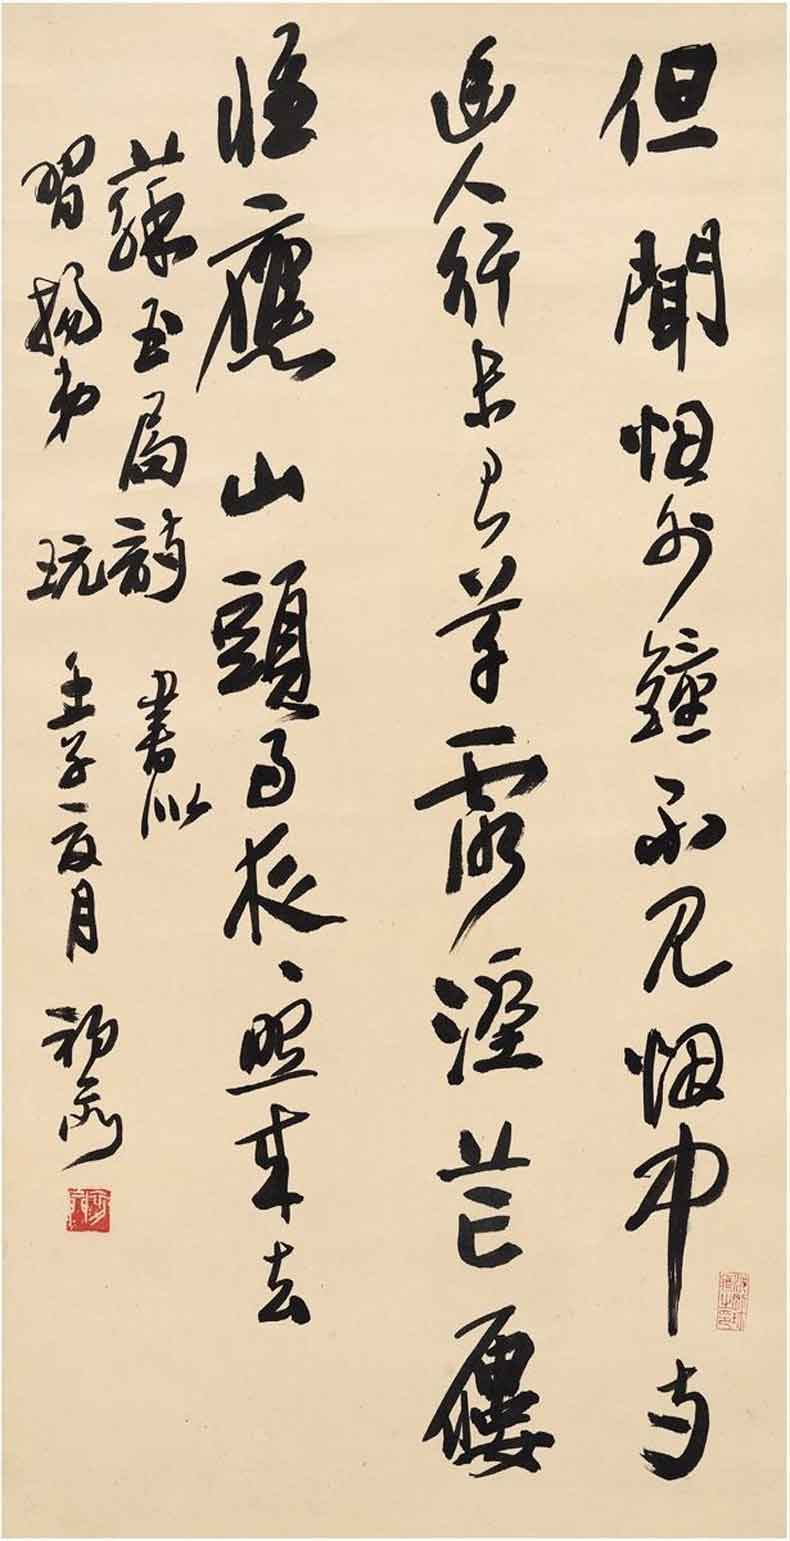 但聞烟外鐘不見烟中寺
幽人行未已草露溼芒屨
惟應山頭月夜〻照來去
蘇玉局詩 書似
習揚弟 玩 壬子夏月